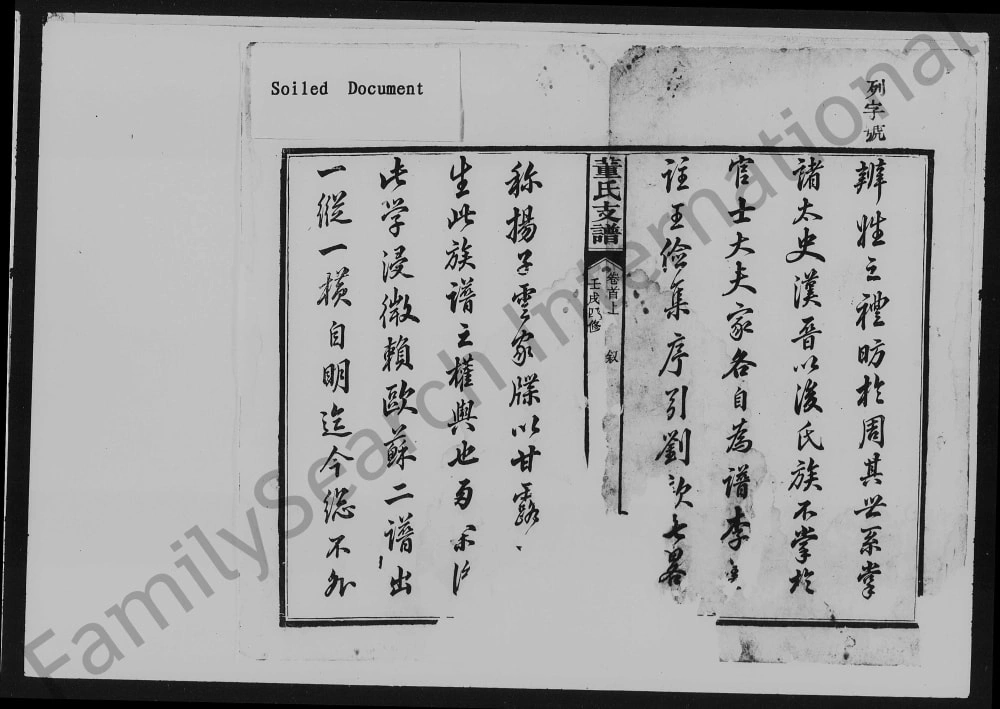 Soiled Document
列字號
辨姓之禮昉於周其世系掌
諸太史漢晉以後氏族不掌於
官士大夫家各自為譜李善
註王儉集序引劉歆七畧
董氏支譜
卷首上 敘
壬戌四修
称揚子雲家牒以甘露
生此族譜之權輿也
此学浸微賴歐蘇二譜出
一縱一横自明迄今總不外
FamilySearch International